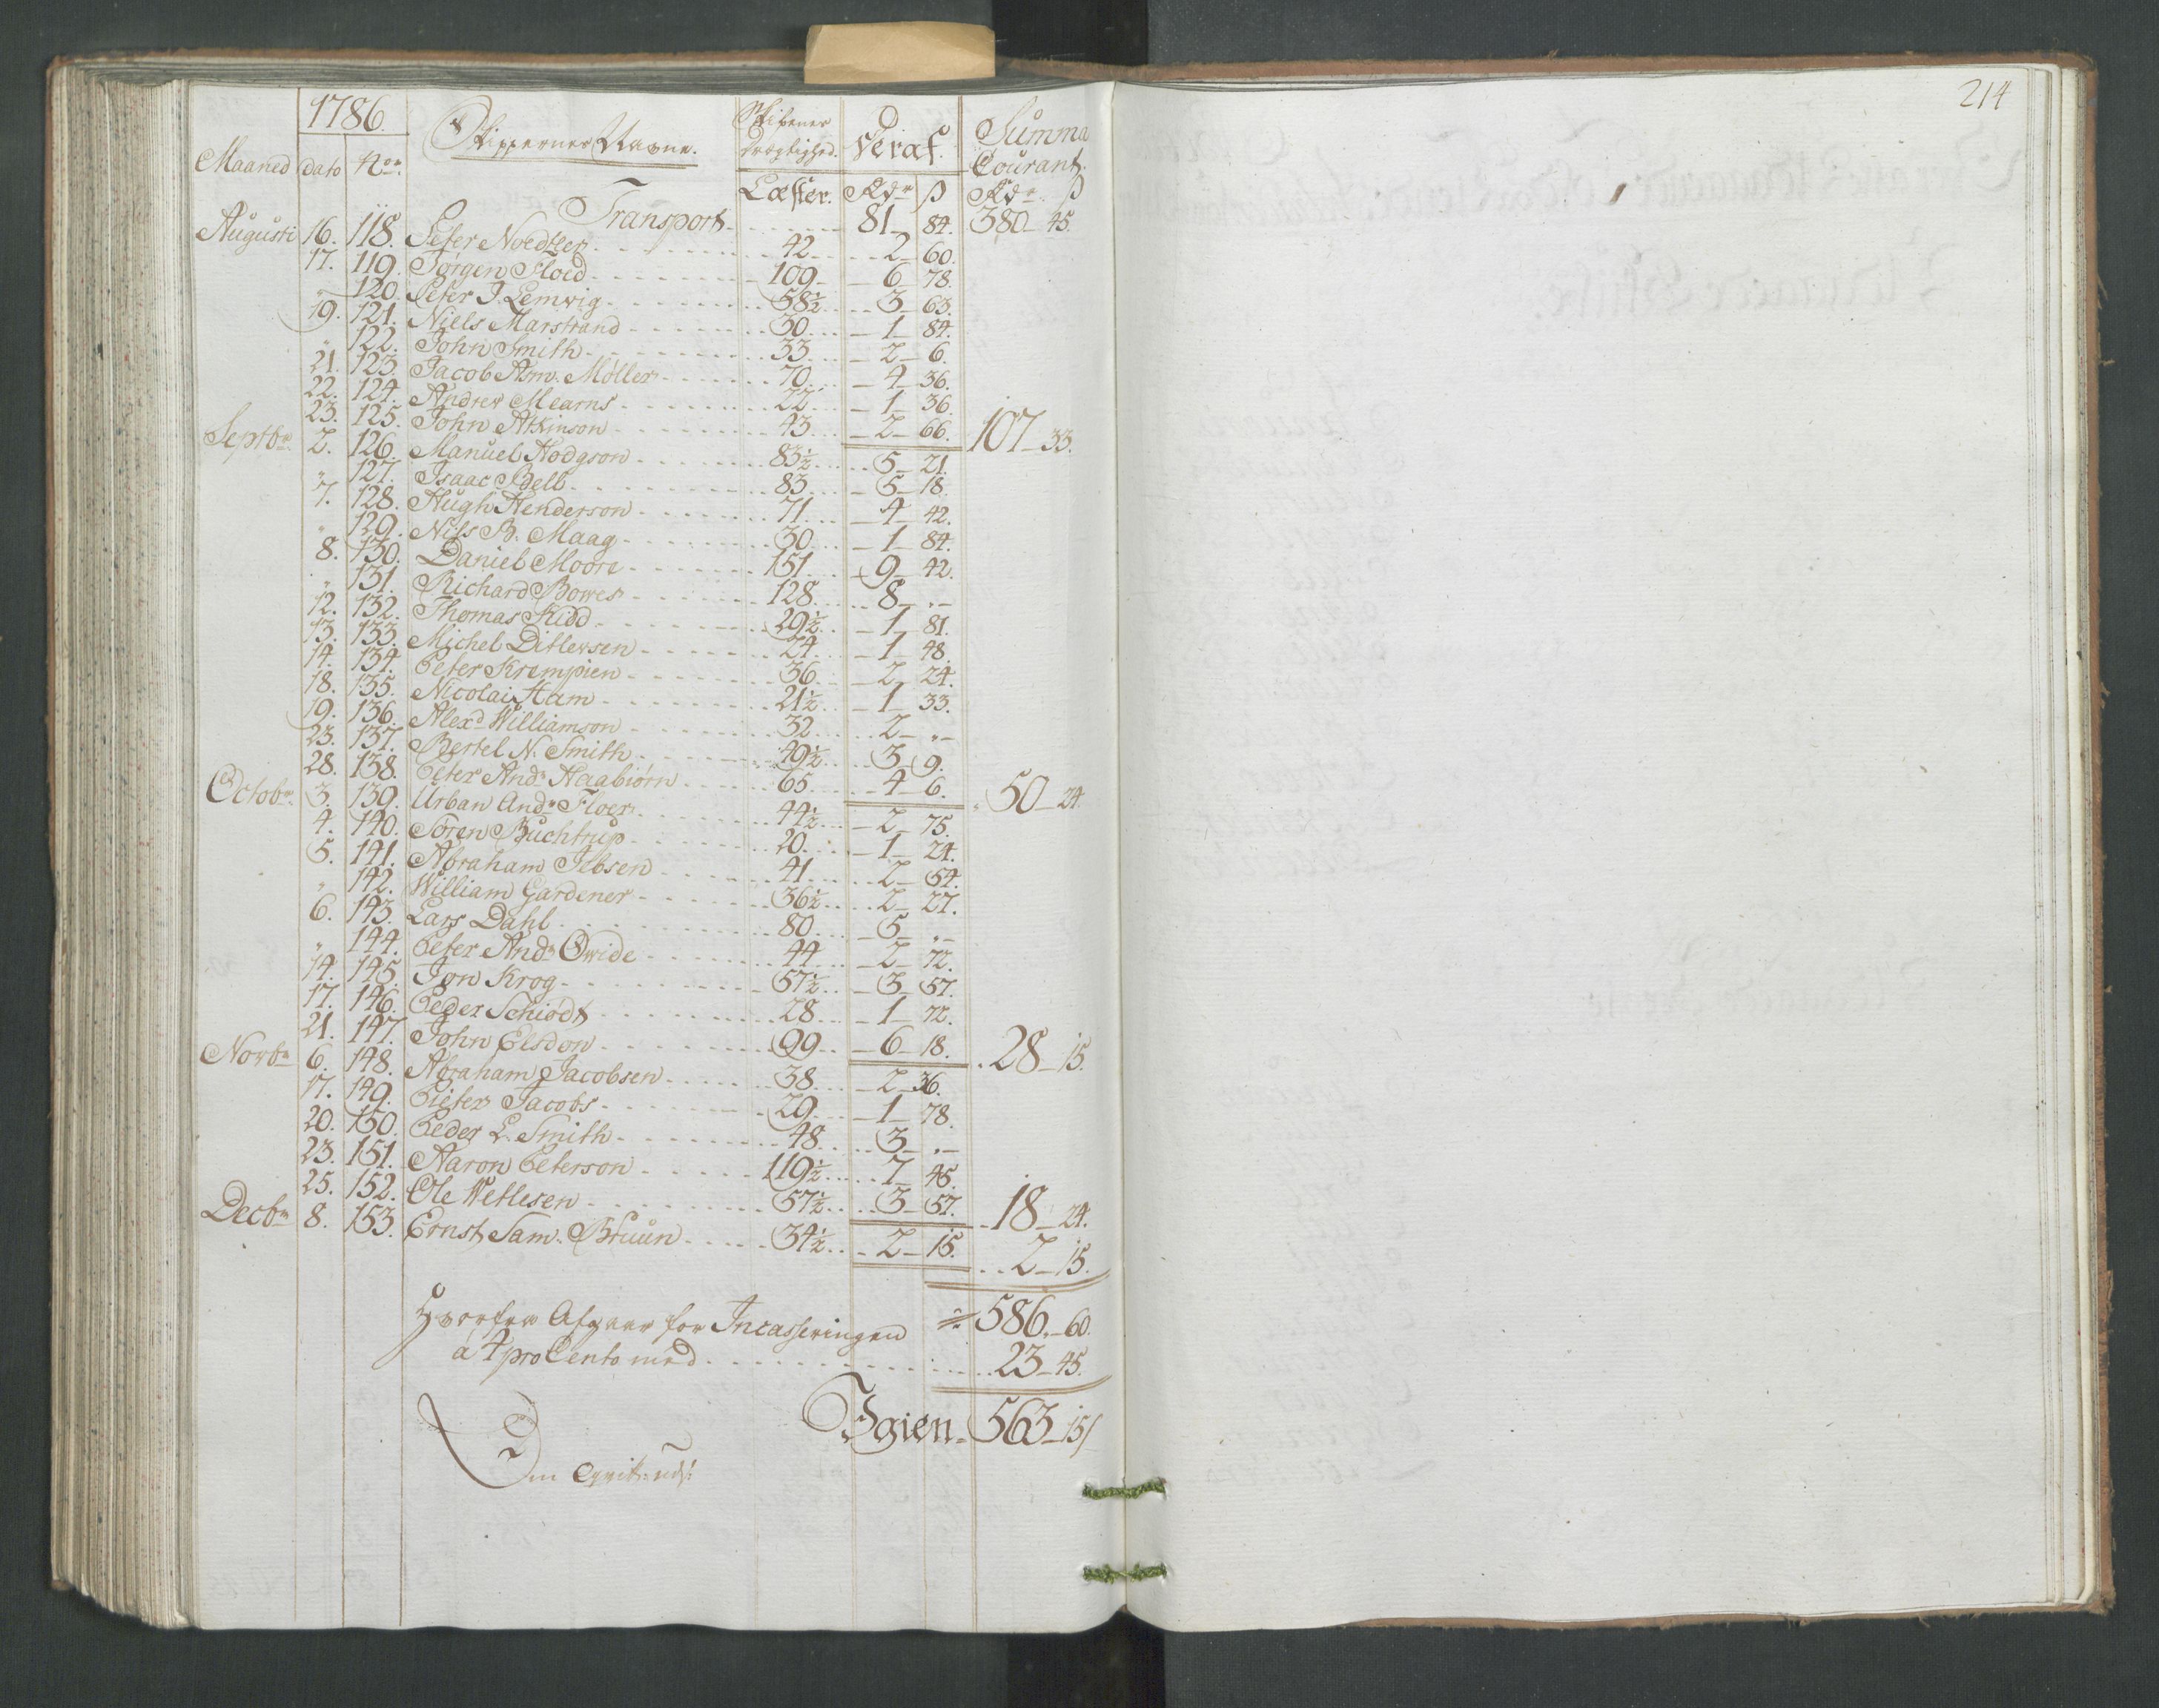 214
1786.
Maaned Dato Nor. Skippernes Navne. Skibenes Drægtighed. Deraf. Summa Courant.
Læster. Rdr ß Rdr ß
Transport 81 84. 380 45.
Augusti 16. 118. Peter Noedtler 42 2 60.
17. 119. Jørgen Floed 109 6 78.
" 120. Peter J. Lemvig 58½ 3 63.
19. 121. Niels Marstrand 30 1 84.
" 122. John Smith 33 2 6.
21. 123. Jacob Asm. Møller 70 4 36.
22. 124. Andrew Mearns 22 1 36.
23. 125. John Atkinson 43 2 66. 107 33.
Septbr 2. 126. Manuel Hodgson 83½ 5 21.
" 127. Isaac Bell 83 5 18.
7. 128. Hugh Henderson 71 4 42.
" 129. Nils B. Maag 30 1 84.
8. 130. Daniel Moore 151 9 42.
" 131. Richard Bowes 128 8 "
12. 132. Thomas Kidd 29½ 1 81.
13. 133. Michel Ditlevsen 24 1 48.
14. 134. Peter Krempien 36 2 24.
18. 135. Nicolai Ham 21½ 1 33.
19. 136. Alexd Williamson 32 2 "
23. 137. Bertel N. Smith 49½ 3 9.
28. 138. Peter Andr Haabiørn 65 4 6. 50 24.
Octobr. 3. 139. Urban Andr Floer 44½ 2 75.
4. 140. Søren Buchtrup 20 1 24.
5. 141. Abraham Jebsen 41 2 54.
" 142. William Gardener 36½ 2 27.
6. 143. Lars Dahl 80 5 "
" 144. Peter Andr Qwide 44 2 72.
14. 145. Jøn Krog 57½ 3 57.
17. 146. Peder Schiødt 28 1 72.
21. 147. John Elsdon 99 6 18. 28 15.
Novbr 6. 148. Abraham Jacobsen 38 2 36.
17. 149. Pieter Jacobs 29 1 78.
20. 150. Peder L. Smith 48 3 "
23. 151. Aaron Peterson 119½ 7 45.
25. 152. Ole Wetlesen 57½ 3 57. 18 24.
Decbr 8. 153. Ernst Sam. Bruun 34½ 2 15. 2 15.
586. 60.
Hvorfra Afgaar for Incasseringen
a 4 pro Cento med 23 45.
Igien 563 15